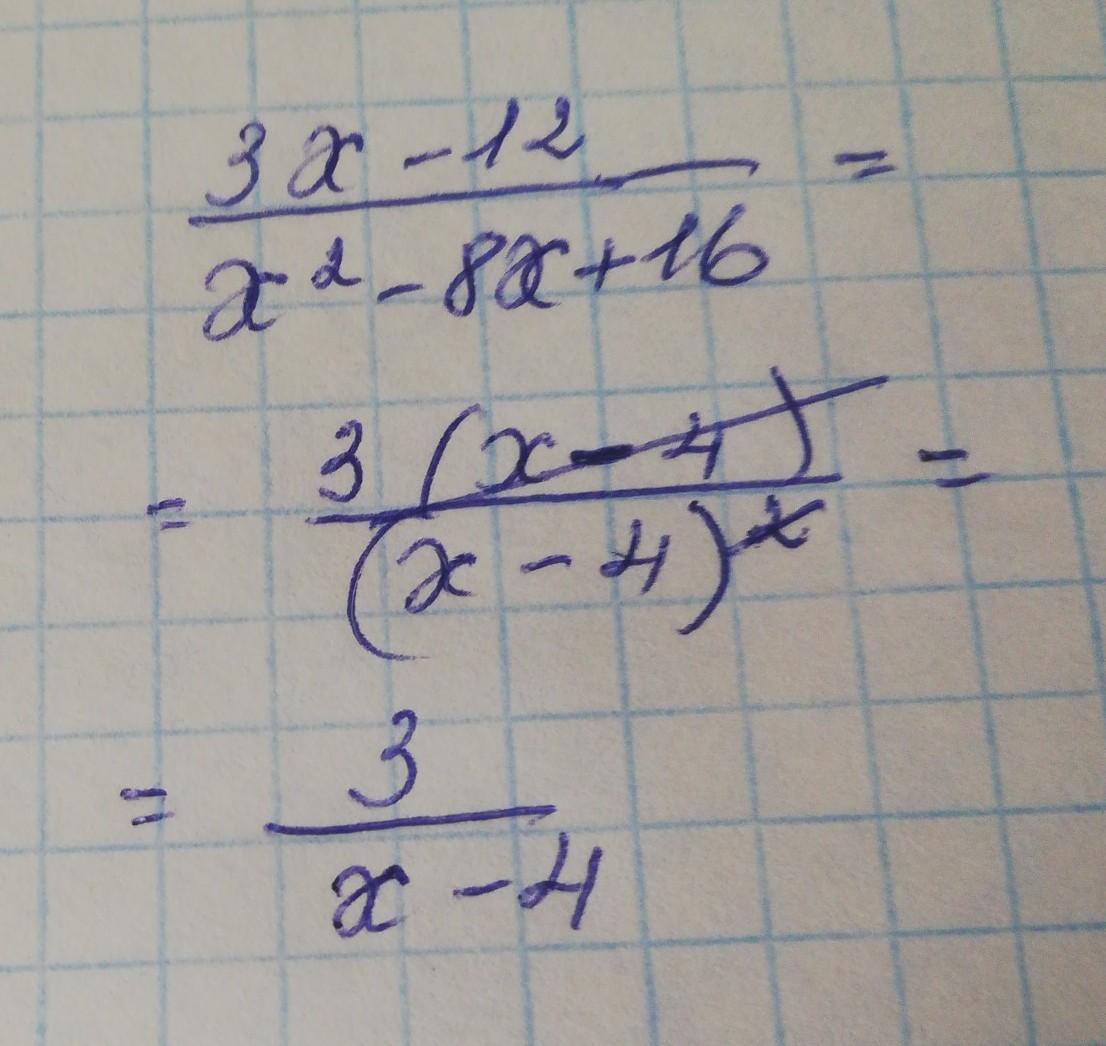 3x - 12
=
x² - 8x + 16
= 3 (x - 4) =
(x - 4)²
= 3
x - 4